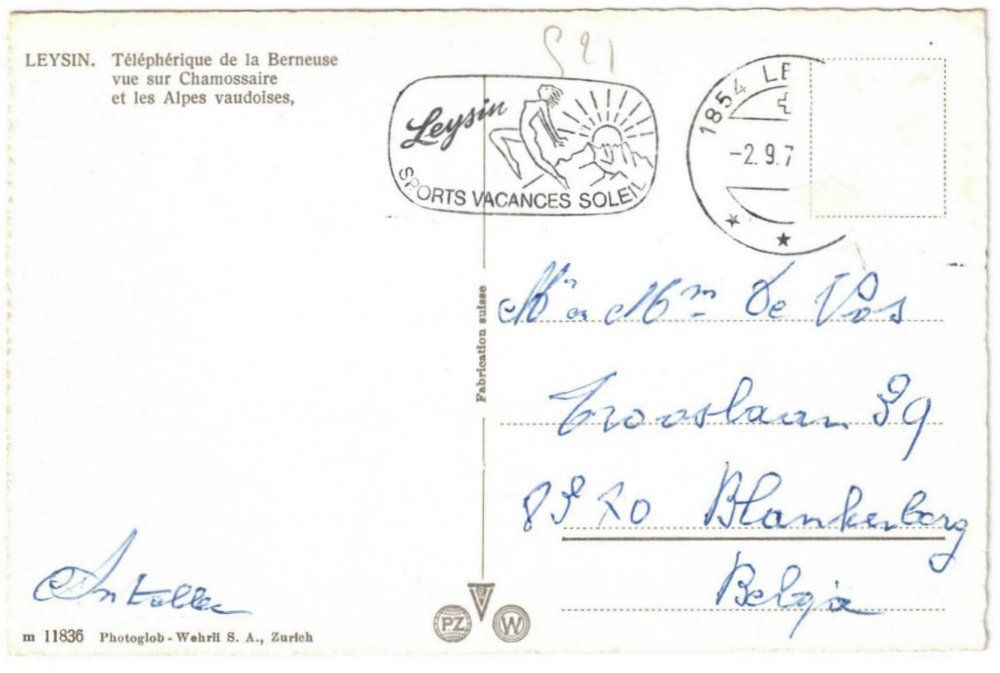 LEYSIN. Téléphérique de la Berneuse
vue sur Chamossaire
et les Alpes vaudoises,
S21
Leysin
SPORTS VACANCES SOLEIL
1854 LE
-2.9.7
Fabrication suisse
Mr en Mme De Vos
Trooslaan 39
8370 Blankenberg
Belgia
m 11836 Photoglob-Wehrli S. A., Zurich
PZ
W